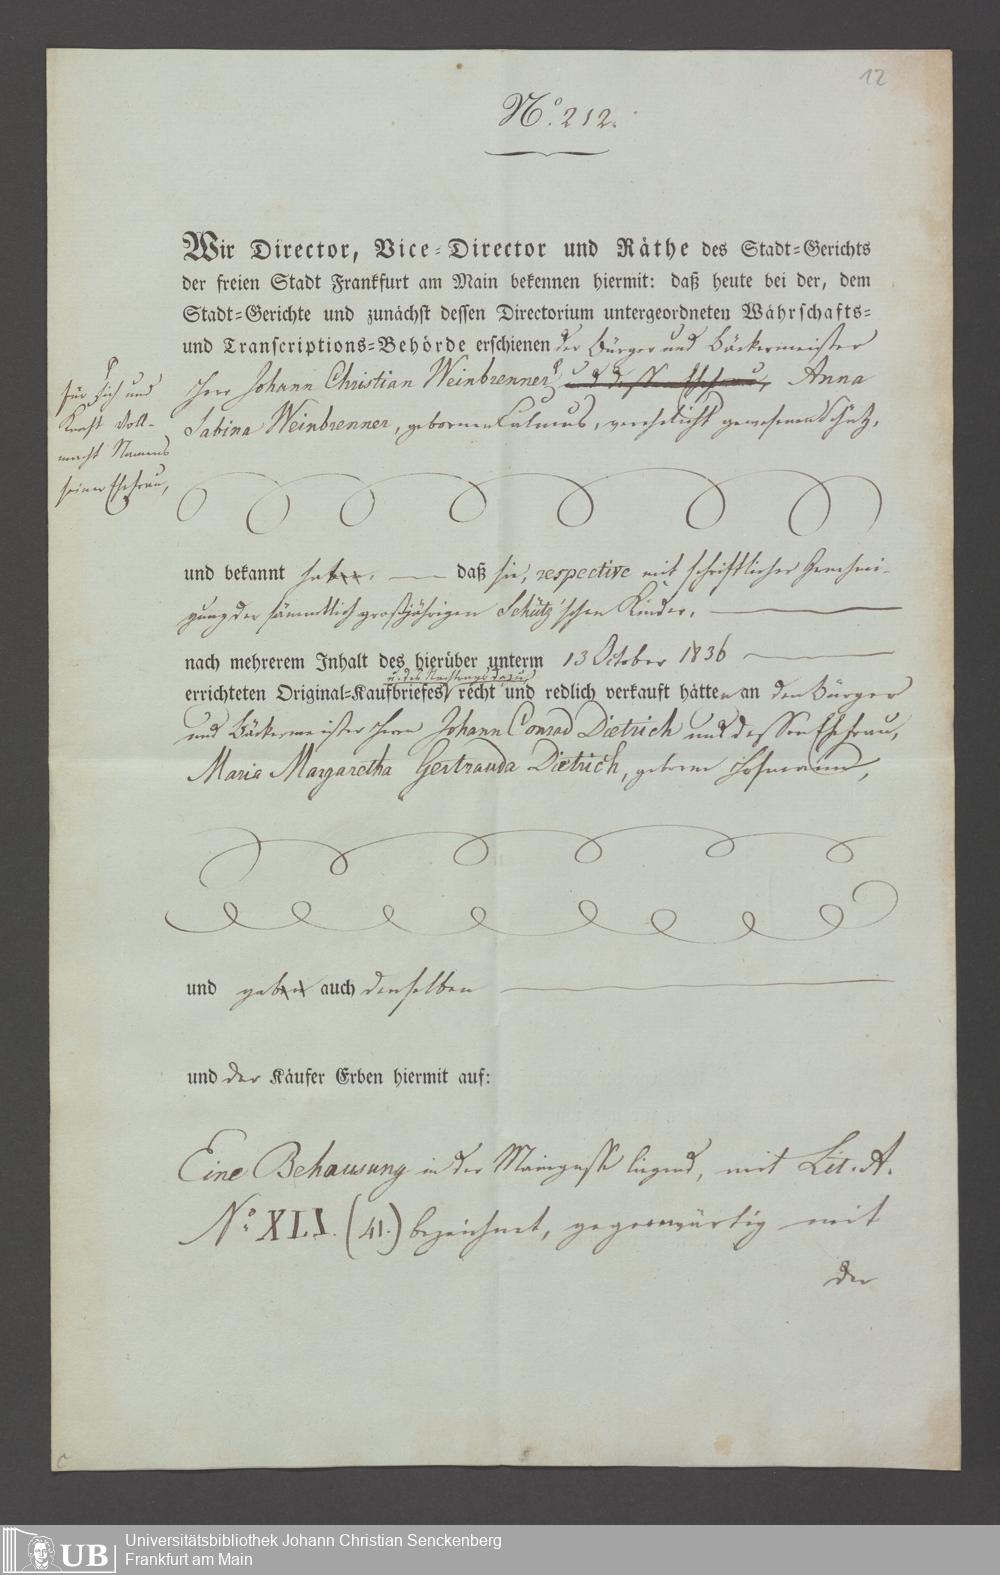 12
No. 212.
Wir Director, Vice-Director und Räthe des Stadt-Gerichts
der freien Stadt Frankfurt am Main bekennen hiermit: daß heute bei der, dem
Stadt-Gerichte und zunächst dessen Directorium untergeordneten Währschafts-
und Transcriptions-Behörde erschienen der Bürger und Bäckermeister
Herr Johann Christian Weinbrenner, und dessen Ehefrau, Anna
für sich und
Kraft Voll-
macht Namens
seiner Ehefrau,
Sabina Weinbrenner, geborne Calmus, verehelicht gewesene Schütz,
und bekannt haben, daß sie, respective mit schriftlicher Genehmi-
gung der sämmtlich großjährigen Schütz'schen Kinder,
nach mehrerem Inhalt des hierüber unterm 13 October 1836
u. des Nachtrags dazu
errichteten Original-Kaufbriefes, recht und redlich verkauft hätten an den Bürger
und Bäckermeister Herrn Johann Conrad Dietrich und dessen Ehefrau,
Maria Margaretha Gertrauda Dietrich, geborne Hofmann,
und gaben auch denselben
und der Käufer Erben hiermit auf:
Eine Behausung in der Maingasse liegend, mit Lit. A.
No. XLI. (41.) bezeichnet, gegenwärtig mit
der
UB
Universitätsbibliothek Johann Christian Senckenberg
Frankfurt am Main